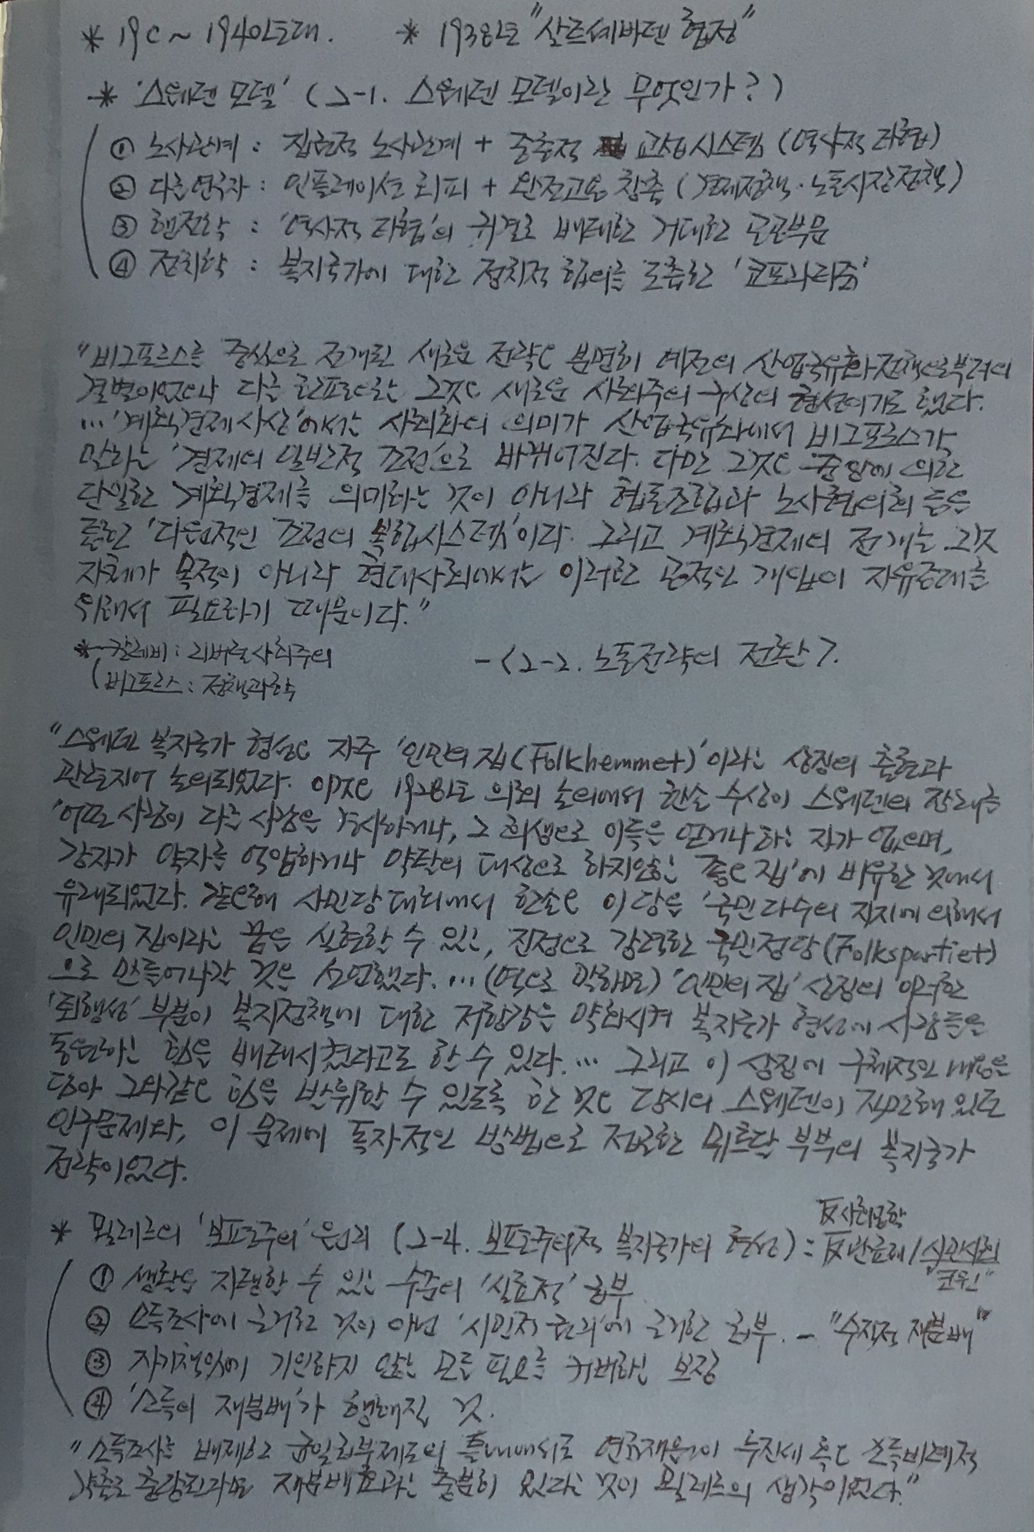 * 19C ~ 1940년대. * 1938년 "살트셰바덴 협정"
* '스웨덴 모델' (2-1. 스웨덴 모델이란 무엇인가?)
① 노사관계 : 집권적 노사관계 + 중층적 교섭시스템 (역사적 타협)
② 다른연구자 : 인플레이션 회피 + 완전고용 창출 (경제정책·노동시장정책)
③ 행정학 : '역사적 타협'의 귀결로 배태한 거대한 공공부문
④ 정치학 : 복지국가에 대한 정치적 합의를 도출한 '코포라티즘'
"비그포르스를 중심으로 전개된 새로운 전략은 분명히 예전의 산업국유화정책으로부터의
결별이었으나 다른 한편으로는 그것은 새로운 사회주의 구상의 형성이기도 했다.
... '계획경제사상'에서는 사회화의 의미가 산업국유화에서 비그포르스가
말하는 '경제의 일반적 조정'으로 바뀌어진다. 다만 그것은 중앙에 의한
단일한 계획경제를 의미하는 것이 아니라 협동조합과 노사협의회 등을
통한 '다원적인 조정의 복합시스템'이다. 그리고 계획경제의 전개는 그것
자체가 목적이 아니라 현대사회에서는 이러한 공적인 개입이 자유증대를
위해서 필요하기 때문이다."
* 칼레비 : 리버럴사회주의
(비그포르스 : 정책과학
- <2-2. 노동전략의 전환>.
"스웨덴 복지국가 형성은 자주 '인민의 집(Folkhemmet)'이라는 상징의 출현과
관련지어 논의되었다. 이것은 1928년 의회 논의에서 한손 수상이 스웨덴의 장래를
'어떤 사람이 다른 사람을 경시하거나, 그 희생으로 이득을 얻거나 하는 자가 없으며,
강자가 약자를 억압하거나 약탈의 대상으로 하지않는 좋은 집'에 비유한 것에서
유래되었다. 같은해 사민당 대회에서 한손은 이 당을 '국민다수의 지지에 의해서
인민의 집이라는 꿈을 실현할 수 있는, 진정으로 강력한 국민정당(Folkspartiet)
으로 만들어나갈 것을 선언했다. ... (역으로 말하면) '인민의 집' 상징의 이러한
'퇴행성' 부분이 복지정책에 대한 저항감을 약화시켜 복지국가 형성에 사람들을
동원하는 힘을 배태시켰다고도 할 수 있다. ... 그리고 이 상징에 구체적인 내용을
담아 그와같은 힘을 발휘할 수 있도록 한 것은 당시의 스웨덴이 직면해 있던
인구문제와, 이 문제에 독자적인 방법으로 접근한 뮈르달 부부의 복지국가
전략이었다.
反사회공학
* 묄레르의 '보편주의' 원리 (2-4. 보편주의적 복지국가의 형성) : 反관료제/시민사회
"코헨"
① 생활을 지탱할 수 있는 수준의 '실효적' 급부
② 소득조사에 근거한 것이 아닌 '시민적 권리'에 근거한 급부. - "수직적 재분배"
③ 자기책임에 기인하지 않는 모든 필요를 커버하는 보장
④ '소득의 재분배'가 행해질 것.
"소득조사를 배제한 균일급부제도의 틀내에서도 연금재원이 누진세 혹은 소득비례적
갹출로 충당된다면 재분배효과는 충분히 있다는 것이 묄레르의 생각이었다."